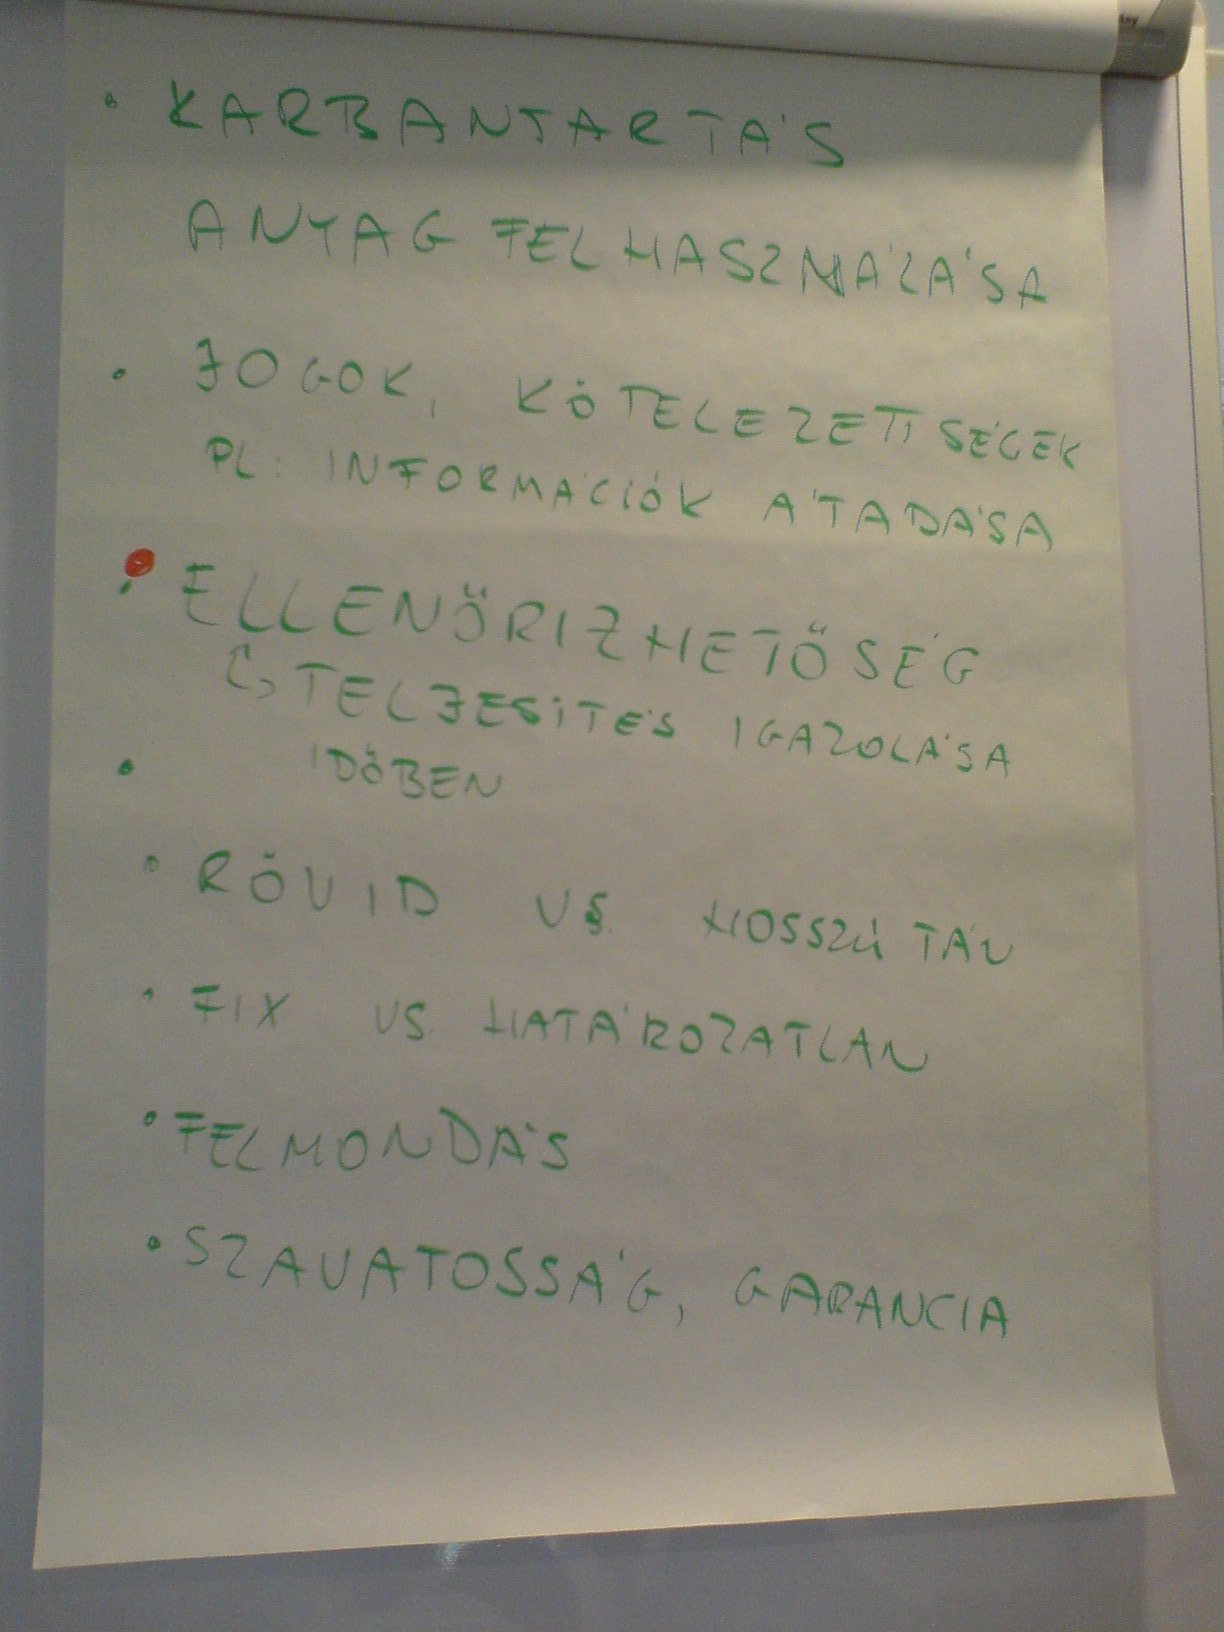 • KARBANTARTÁS
ANYAG FELHASZNÁLÁSA
• JOGOK, KÖTELEZETTSÉGEK
PL: INFORMÁCIÓK ÁTADÁSA
• ELLENŐRIZHETŐSÉG
↳ TELJESÍTÉS IGAZOLÁSA
• IDŐBEN
• RÖVID VS. HOSSZÚ TÁV
• FIX VS. HATÁROZATLAN
• FELMONDÁS
• SZAVATOSSÁG, GARANCIA